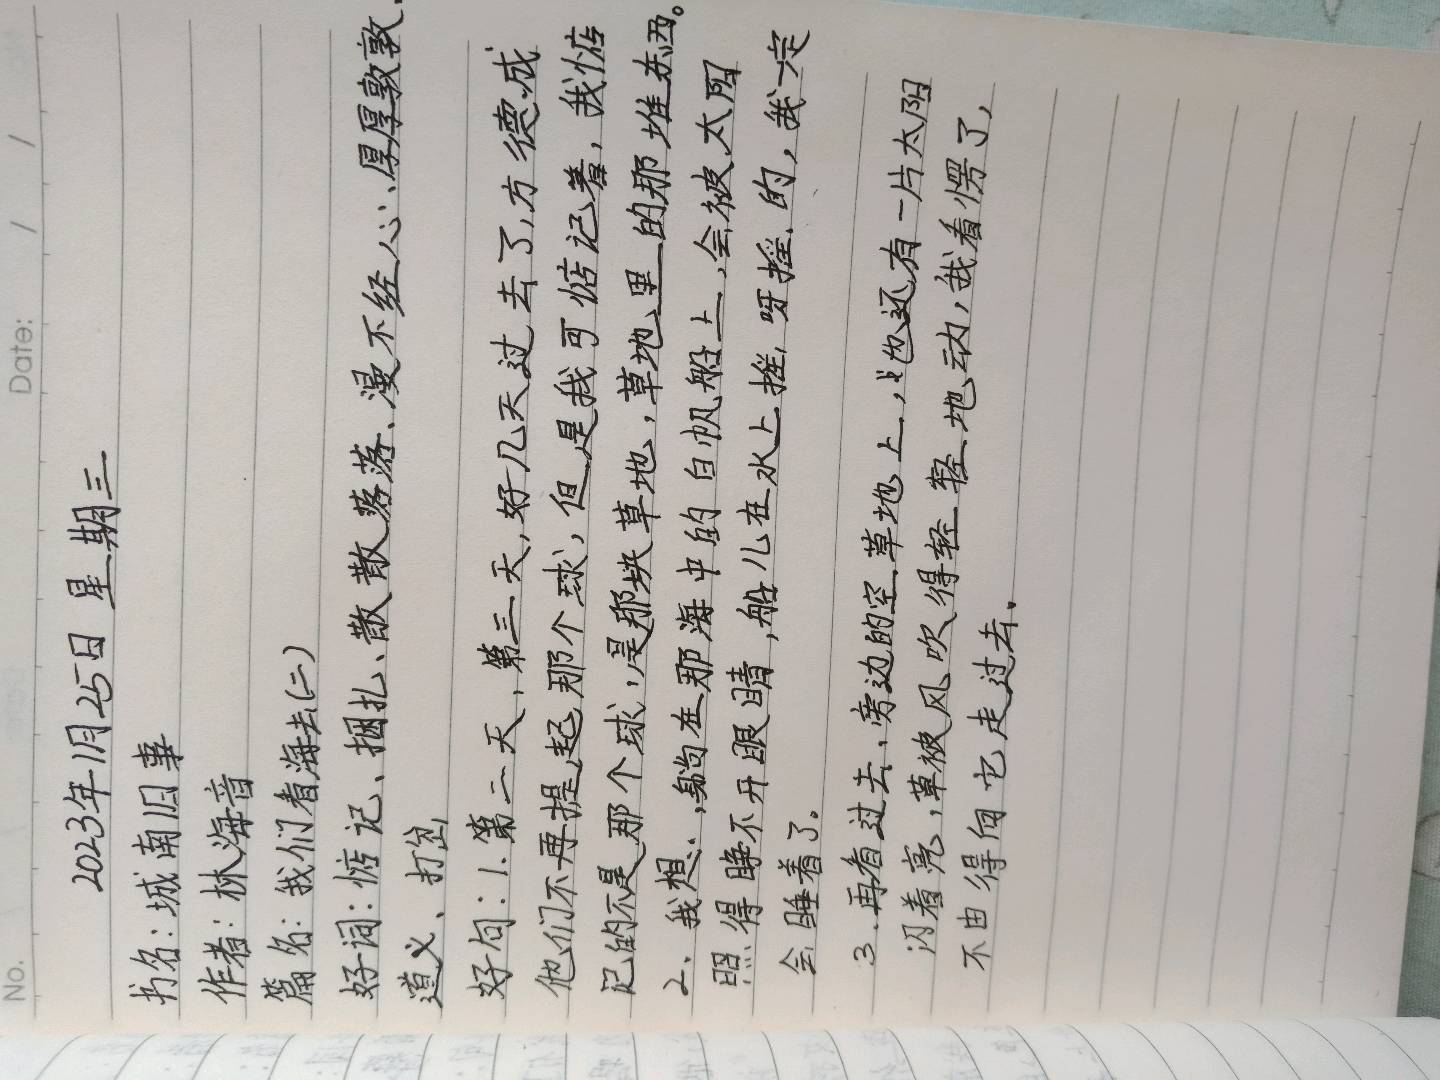 No.
Date: / /
2023年1月25日 星期三
书名：城南旧事
作者：林海音
篇名：我们看海去(二)
好词：惦记、捆扎、散散落落、漫不经心、厚厚敦敦、
道义、打岔
好句：1.第二天，第三天，好几天过去了，方德成
他们不再提起那个球，但是我可惦记着，我惦
记的不是那个球，是那块草地，草地里的那堆东西。
2、我想，躺在那海中的白帆船上，会被太阳
照得睁不开眼睛，船儿在水上摇呀摇的，我一定
会睡着了。
3.再看过去，旁边的空草地上，也还有一片太阳
闪着亮，草被风吹得轻轻地动，我看愣了，
不由得向它走过去。